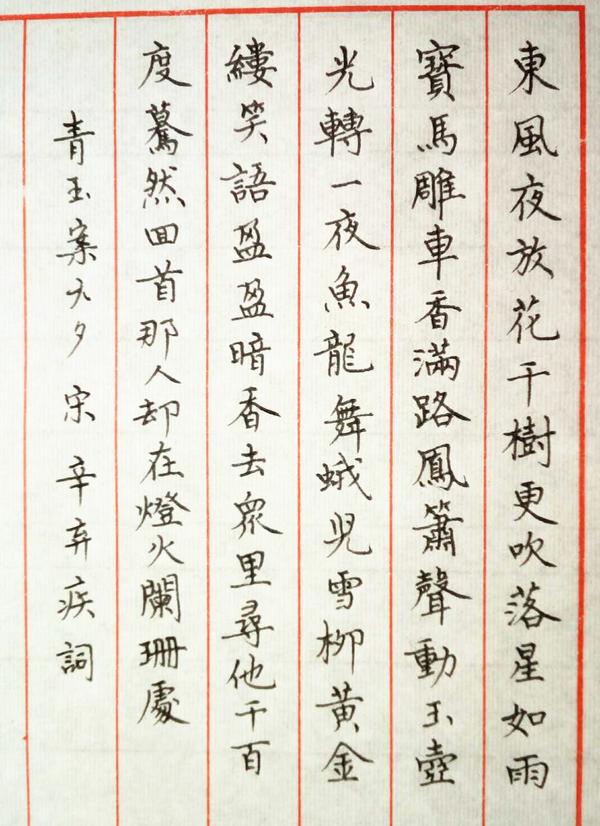 東風夜放花千樹更吹落星如雨
寶馬雕車香滿路鳳簫聲動玉壺
光轉一夜魚龍舞蛾兒雪柳黃金
縷笑語盈盈暗香去眾里尋他千百
度驀然回首那人却在燈火闌珊處
青玉案元夕 宋 辛弃疾詞